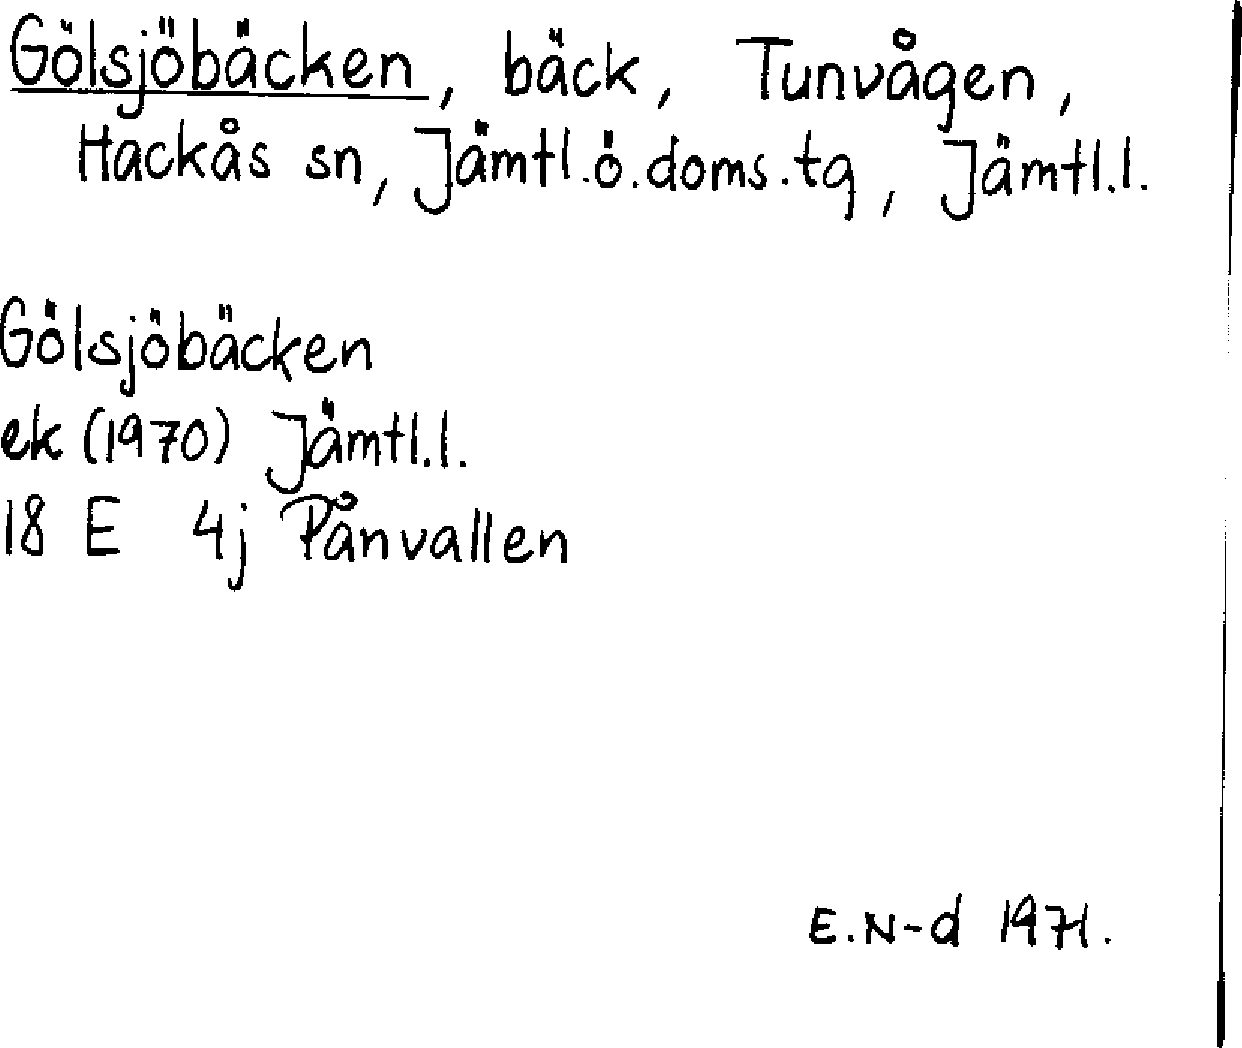 Gölsjöbäcken, bäck, Tunvågen,
Hackås sn, Jämtl.ö.doms.tg, Jämtl.l.
Gölsjöbäcken
ek (1970) Jämtl.l.
18 E 4j Pånvallen
E.N-d 1971.